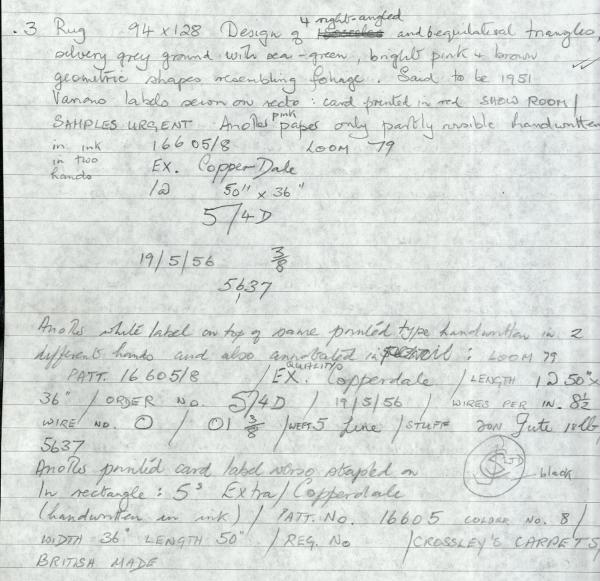 .3 Rug 94 x 128 Design of 4 right-angled and 6 equilateral triangles,
silvery grey ground with sea-green, bright pink + brown
geometric shapes resembling foliage. Said to be 1951
Various labels sewn on recto: card printed in red SHOW ROOM/
SAMPLES URGENT. Another pink paper only partly visible handwritten
in ink in two hands
16605/8 LOOM 79
EX. Copper Dale
12 50" x 36"
5/4D
19/5/56 3/8
5637
Another white label on top of same printed type handwritten in 2
different hands and also annotated in pencil: LOOM 79
PATT. 16605/8 / QUALITY EX. Copperdale / LENGTH 12 50" x
36" / ORDER NO. 5/4D / 19/5/56 / WIRES PER IN. 8½
WIRE NO. 0 / 01 3/8 / WEFT 5 fine / STUFF Jute 18lb
5637
Another printed card label also stapled on
In rectangle: 5³ Extra / Copperdale black
(handwritten in ink) / PATT. NO. 16605 COLOUR NO. 8 /
WIDTH 36" LENGTH 50" / REG. No / CROSSLEY'S CARPETS
BRITISH MADE